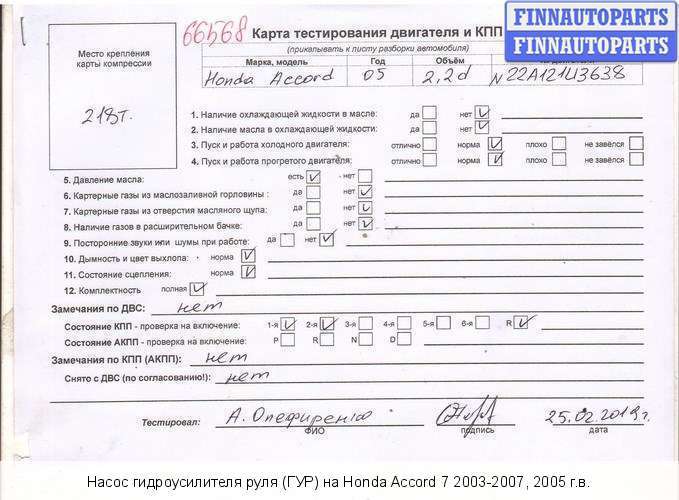 66568 Карта тестирования двигателя и КПП
FINNAUTOPARTS
FINNAUTOPARTS
(прикалывать к листу разборки автомобиля)
Место крепления карты компрессии
218т.
Марка, модель Год Объём
Honda Accord 05 2,2d N22A121Ч3638
1. Наличие охлаждающей жидкости в масле: да нет
2. Наличие масла в охлаждающей жидкости: да нет
3. Пуск и работа холодного двигателя: отлично норма плохо не завёлся
4. Пуск и работа прогретого двигателя: отлично норма плохо не завёлся
5. Давление масла: есть нет
6. Картерные газы из маслозаливной горловины : да нет
7. Картерные газы из отверстия масляного щупа: да нет
8. Наличие газов в расширительном бачке: да нет
9. Посторонние звуки или шумы при работе: да нет
10. Дымность и цвет выхлопа: норма
11. Состояние сцепления: норма
12. Комплектность полная
Замечания по ДВС: нет
Состояние КПП - проверка на включение: 1-я 2-я 3-я 4-я 5-я 6-я R
Состояние АКПП - проверка на включение: P R N D
Замечания по КПП (АКПП): нет
Снято с ДВС (по согласованию!): нет
Тестировал: А. Олефиренко 25.02.2019г.
ФИО подпись дата
Насос гидроусилителя руля (ГУР) на Honda Accord 7 2003-2007, 2005 г.в.